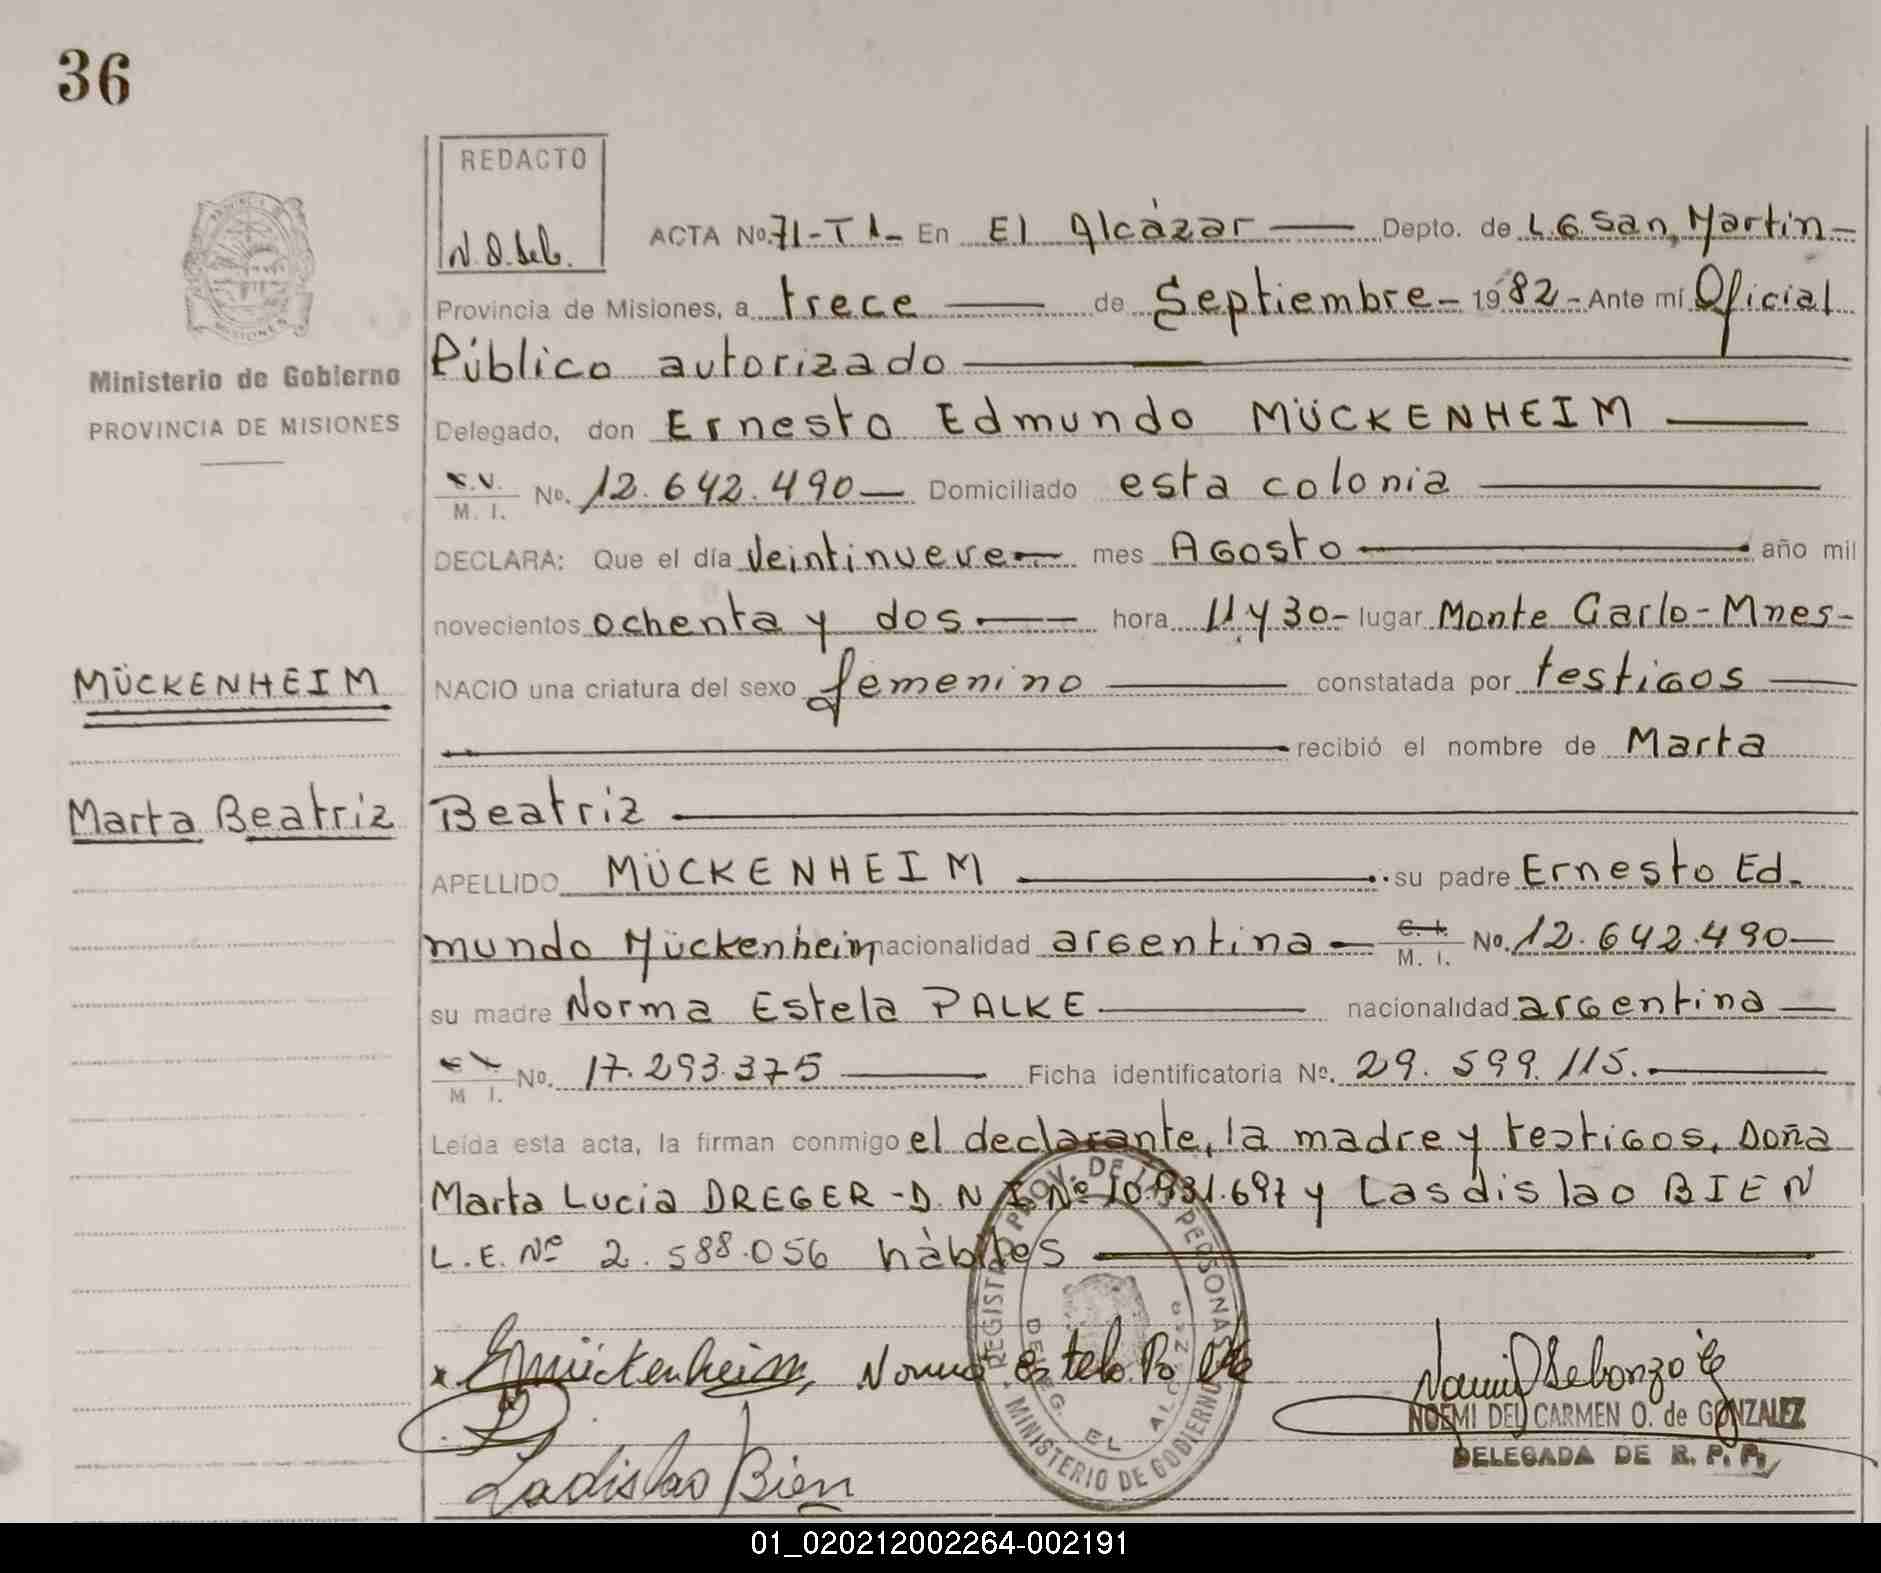 36
REDACTO
ACTA No. 71-T 1- En El Alcázar Depto. de L.G. San Martin-
Provincia de Misiones, a trece de Septiembre- 1982- Ante mí Oficial
Ministerio de Gobierno
PROVINCIA DE MISIONES
Público autorizado
Delegado, don Ernesto Edmundo MÜCKENHEIM
M. I. No. 12.642.490- Domiciliado esta colonia
DECLARA: Que el día Veintinueve- mes Agosto año mil
novecientos ochenta y dos- hora 11 y 30- lugar Monte Carlo-Mnes-
MÜCKENHEIM
NACIO una criatura del sexo femenino constatada por testigos
recibió el nombre de Marta
Marta Beatriz
Beatriz
APELLIDO MÜCKENHEIM su padre Ernesto Ed-
mundo Mückenheim nacionalidad argentina- M. I. No. 12.642.490-
su madre Norma Estela PALKE nacionalidad argentina
M I. No. 17.293.375 Ficha identificatoria No. 29.599.115.
Leída esta acta, la firman conmigo el declarante, la madre y testigos, Doña
Marta Lucia DREGER -D.N.I. Nº 10.931.697 y Lasdislao BIEN
L.E. Nº 2.588.056 hábiles
REGISTRO PROV. DE LAS PERSONAS
MINISTERIO DE GOBIERNO
DELEG. EL ALCAZAR
EMückenheim, Norma Estela Palke
NOEMI DEL CARMEN O. de GONZALEZ
DELEGADA DE R. P. P.
Ladislao Bien
01_020212002264-002191